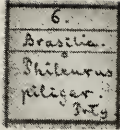 6.
Brasilia.
Phileurus
piliger.
Prty